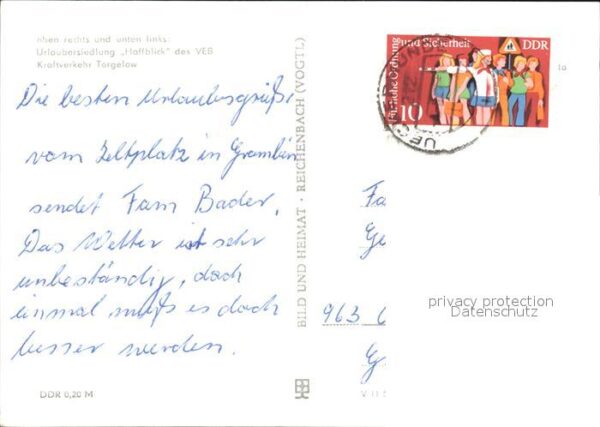 oben rechts und unten links:
Urlaubersiedlung „Haffblick" des VEB
Kraftverkehr Torgelow
Die besten Urlaubsgrüße
vom Zeltplatz in Grambin
sendet Fam Bader.
Das Wetter ist sehr
unbeständig, doch
einmal muß es doch
besser werden.
DDR 0,20 M
BILD UND HEIMAT · REICHENBACH (VOGTL)
und Sicherheit
DDR
10
Fa
Ge
963
G
V 11
privacy protection
Datenschutz